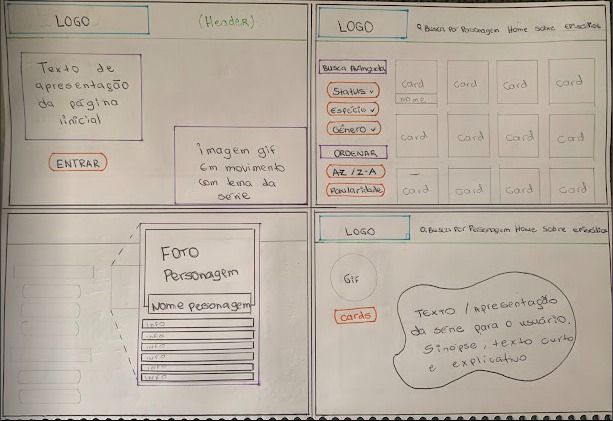 LOGO
(Header)
Texto de
apresentação
da página
inicial
ENTRAR
imagem gif
em movimento
com tema da
série
LOGO
Busca Por Personagem Home Sobre Episódios
Busca Avançada
Status
Espécie
Gênero
ORDENAR
AZ / Z-A
Popularidade
Card
Card
Card
Card
Nome
Card
Card
Card
Card
Card
Card
Card
Card
FOTO
Personagem
Nome personagem
INFO
INFO
INFO
INFO
INFO
LOGO
Busca Por Personagem Home Sobre episódios
Gif
Cards
TEXTO / Apresentação
da série para o usuário.
Sinopse, texto curto
e explicativo